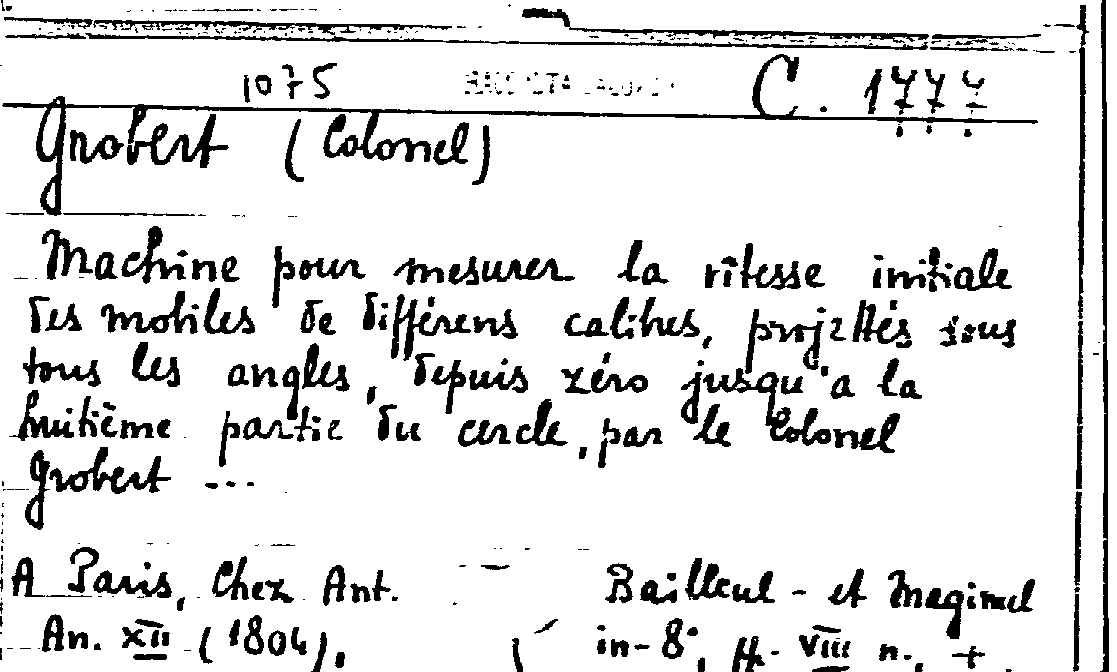 1075 C. 1777
Grobert (Colonel)
Machine pour mesurer la vîtesse initiale
des mobiles de différens calibres, projettés sous
tous les angles, depuis zéro jusqu'a la
huitième partie du cercle, par le Colonel
Grobert ...
A Paris, Chez Ant. Bailleul - et Magimel
An. XII (1804), in-8°, ff. VIII n., +